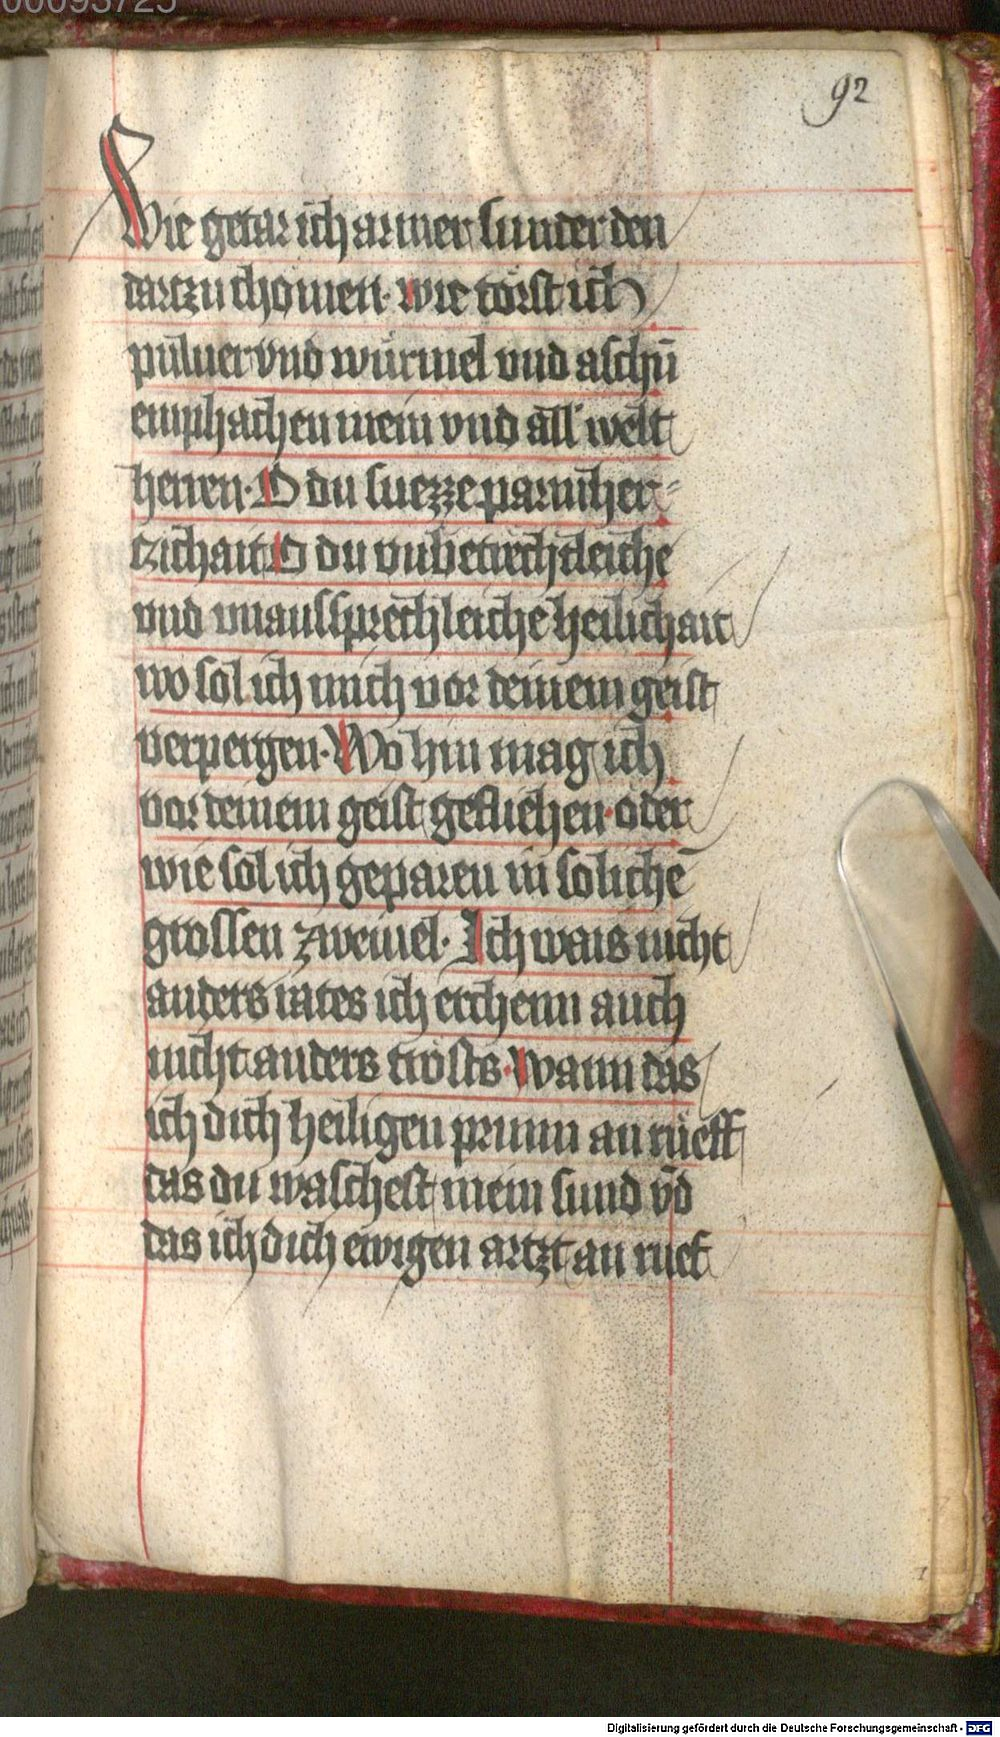 00093725
92
Wie getar ich armer sunder den
dartzu chomen. wie törst ich
puluer vnd würmel vnd aschñ
emphachen mein vnd all welt
herren. O du suezze parmher=
tzichait O du vnbetrechtleiche
vnd vnaussprechleiche heilichait
wo sol ich mich vor deinem geist
verpergen. Wo hin mag ich
vor deinem geist gefliehen. oder
wie sol ich geparen in solichē
grossen zweiuel. Ich wais nicht
anders rates ich erchenn auch
nicht anders trosts. Wann das
ich dich heiligen prunn an rüeff
das du waschest mein sund vͩd
das ich dich ewigen artzt an ruef
Digitalisierung gefördert durch die Deutsche Forschungsgemeinschaft - DFG